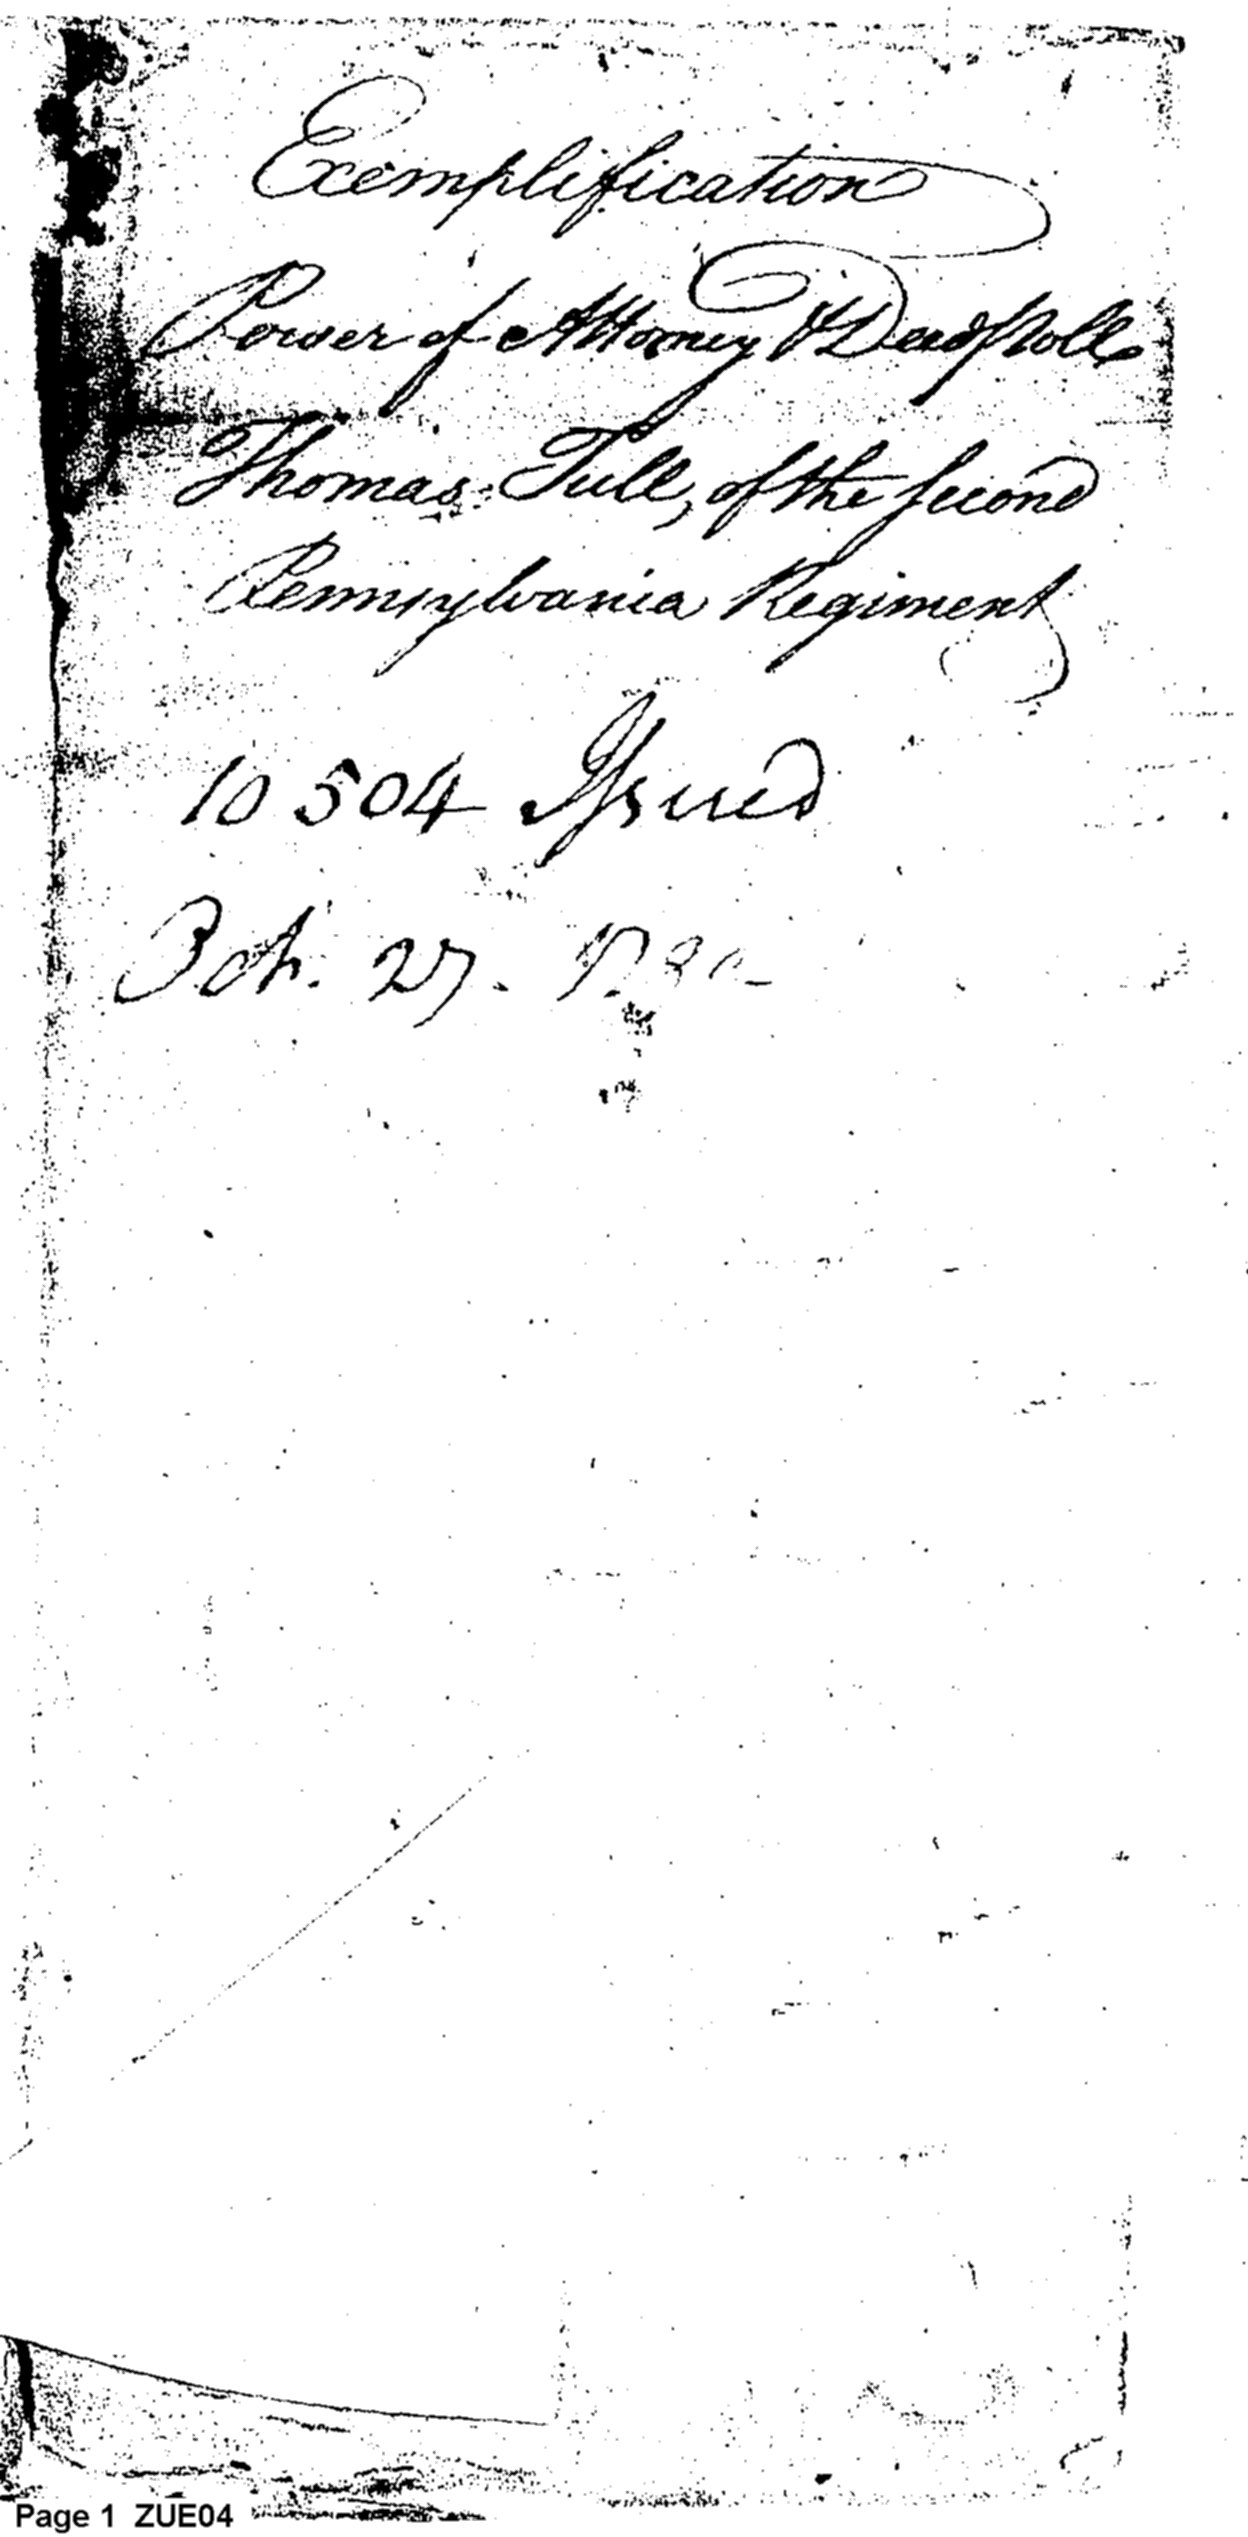 Exemplification
Power of Attorney & Deed Poll
Thomas Tull, of the Second
Pennsylvania Regiment
10504 Issued
Oct. 27.
Page 1 ZUE04